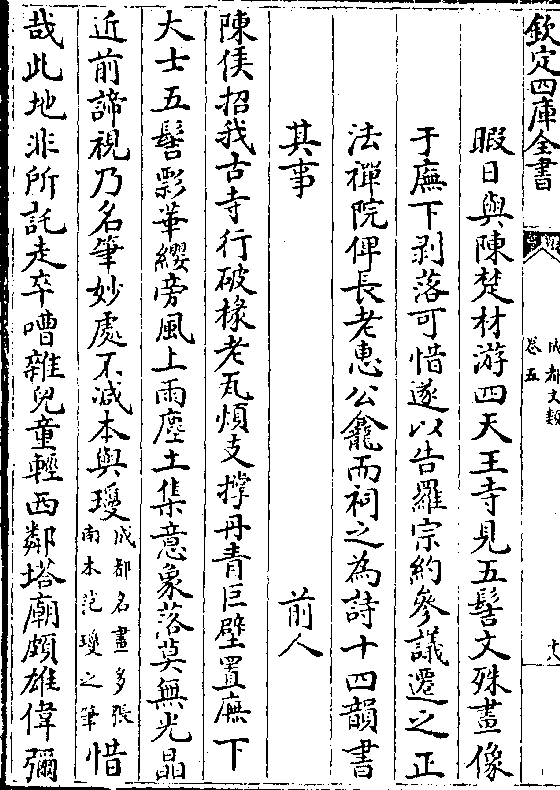 欽定四庫全書
成都文類
卷五
暇日與陳楚材游四天王寺見五髻文殊畫像
于廡下剥落可惜遂以告羅宗約參議遷之正
法禪院俾長老惠公龕而祠之為詩十四韻書
其事 前人
陳侯招我古寺行破椽老瓦煩支撑丹青巨壁置廡下
大士五髻影華纓旁風上雨塵土集意象落莫無光晶
近前諦視乃名筆妙處不減本與瓊成都名畫多張南本范瓊之筆惜
哉此地非所託走卒嘈雜兒童輕西鄰塔廟頗雄偉彌